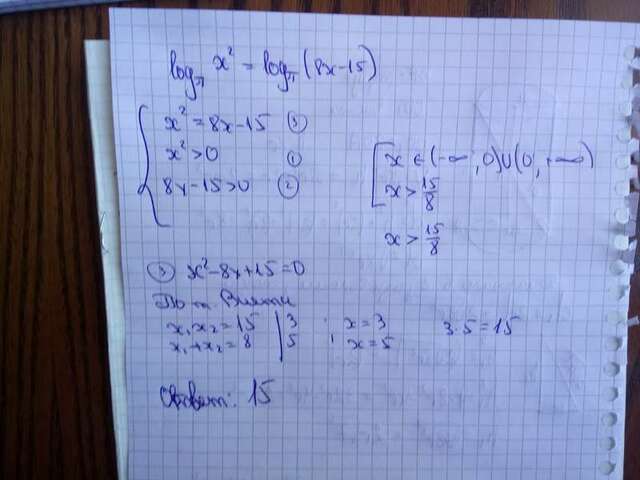 log₇ x² = log₇ (8x-15)
x² = 8x-15 ③
x² > 0 ①
8x-15 > 0 ②
x ∈ (-∞; 0) ∪ (0; +∞)
x > 15/8
x > 15/8
③ x² - 8x + 15 = 0
По т. Виета
x₁x₂ = 15 | 3 x = 3 3·5 = 15
x₁+x₂ = 8 | 5 x = 5
Ответ: 15